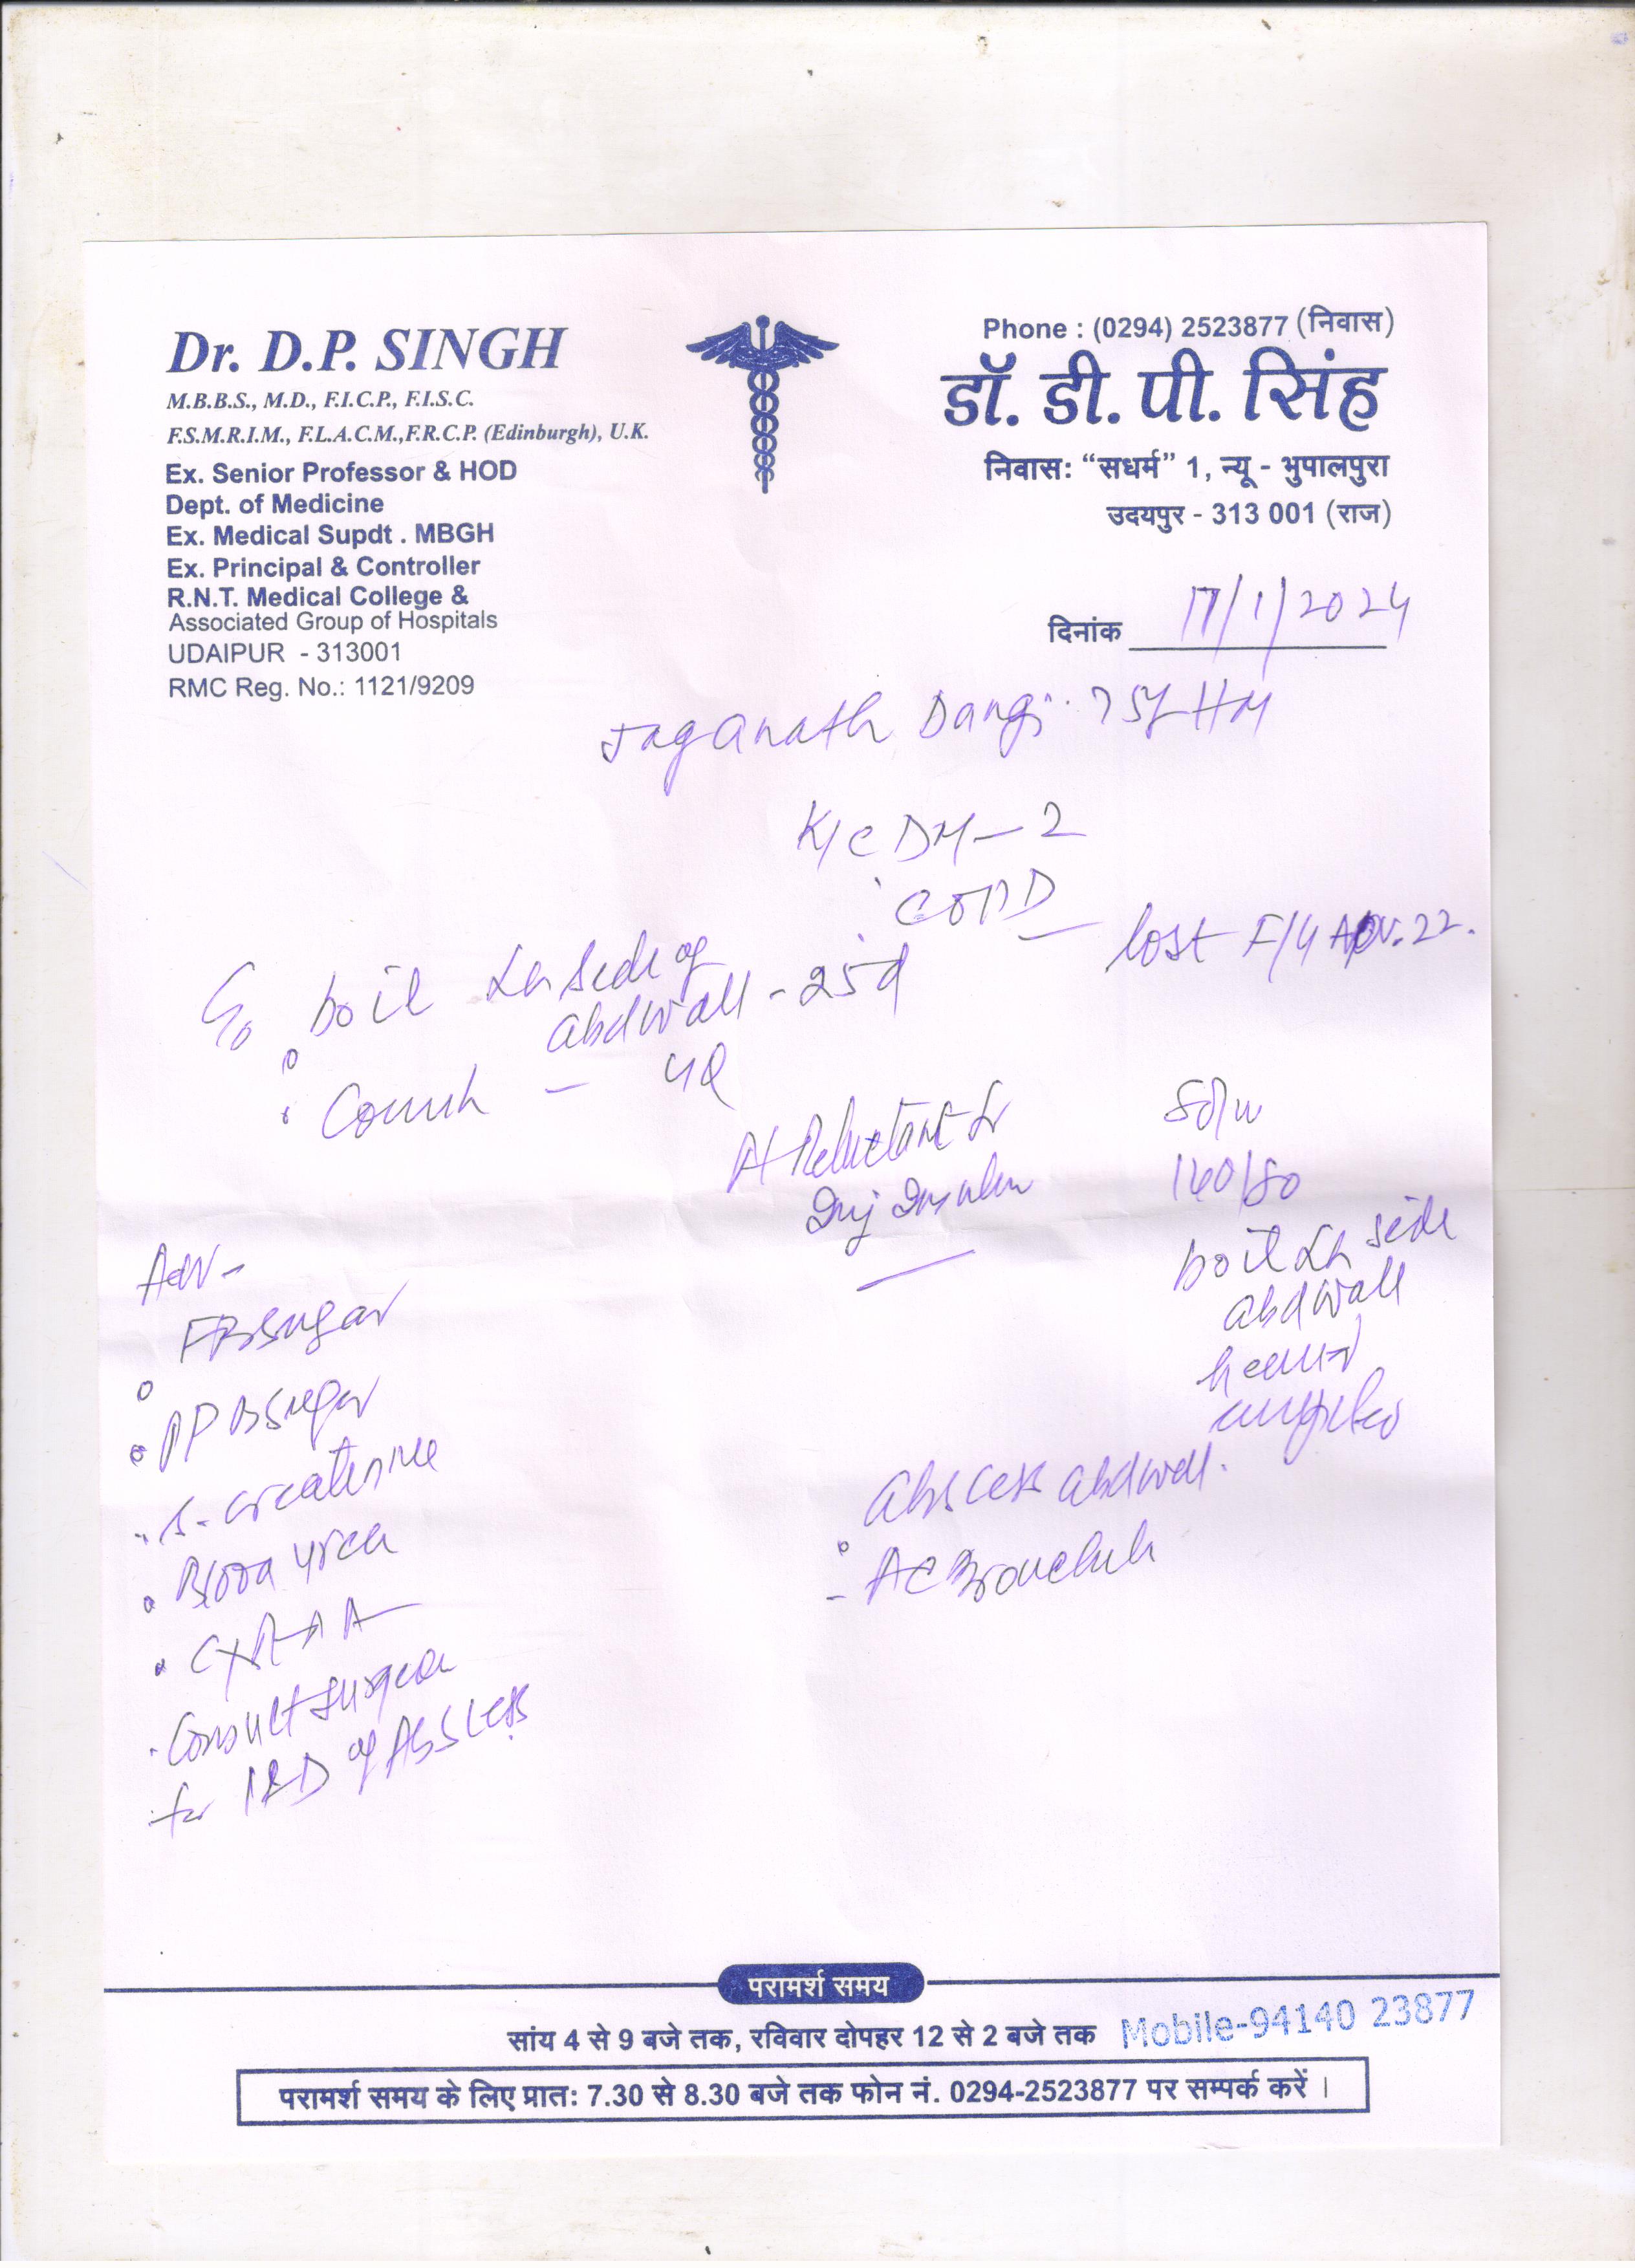 Dr. D.P. SINGH
M.B.B.S., M.D., F.I.C.P., F.I.S.C.
F.S.M.R.I.M., F.L.A.C.M.,F.R.C.P. (Edinburgh), U.K.
Ex. Senior Professor & HOD
Dept. of Medicine
Ex. Medical Supdt . MBGH
Ex. Principal & Controller
R.N.T. Medical College &
Associated Group of Hospitals
UDAIPUR - 313001
RMC Reg. No.: 1121/9209
Phone : (0294) 2523877 (निवास)
डॉ. डी. पी. सिंह
निवास: “सधर्म” 1, न्यू - भुपालपुरा
उदयपुर - 313 001 (राज)
दिनांक 17/1/2024
Jaganath Dangi 75y HM
K/C DM-2
COPD
lost F/U NOV.22.
C/o boil Lt side of
abdwall - 25d
Cough -
Pt Reluctant for
Inj Insulin
160/80
boil Lt side
abdwall
Adv-
FBsugar
PP Bsugar
S. creatinine
Blood urea
CxR-PA
Consult surgeon
for I&D of Abscess
Abscess abdwall.
AC Bronchitis
परामर्श समय
सांय 4 से 9 बजे तक, रविवार दोपहर 12 से 2 बजे तक
Mobile-94140 23877
परामर्श समय के लिए प्रात: 7.30 से 8.30 बजे तक फोन नं. 0294-2523877 पर सम्पर्क करें ।